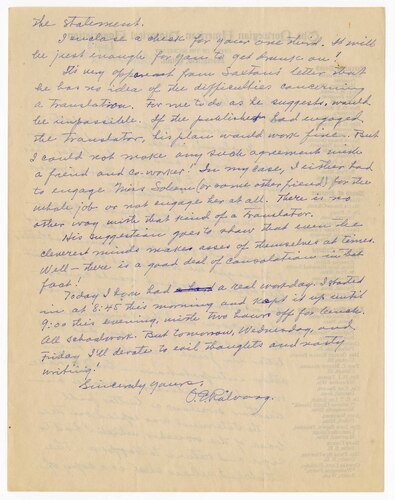 the statement.
I enclose a check for your one third. It will
be just enough for you to get drunk on!
It's very apparent from Saxton's letter that
he has no idea of the difficulties concerning
a translation. For me to do as he suggests, would
be impossible. If the publisher had engaged
the translator, his plan would work fine. But
I could not make any such agreement with
a friend and co-worker! In my case, I either had
to engage Miss Solum (or some other friend) for the
whole job or not engage her at all. There is no
other way with that kind of a translator.
His suggestion goes to show that even the
cleverest minds makes asses of themselves at times.
Well – there is a good deal of consolation in that
fact!
Today I have had a real workday. I started
in at 8:45 this morning and kept it up until
9:00 this evening, with two hours off for lunch.
All schoolwork. But tomorrow, Wednesday, and
Friday I'll devote to evil thoughts and nasty
writing!
Sincerely yours,
O. E. Rölvaag.